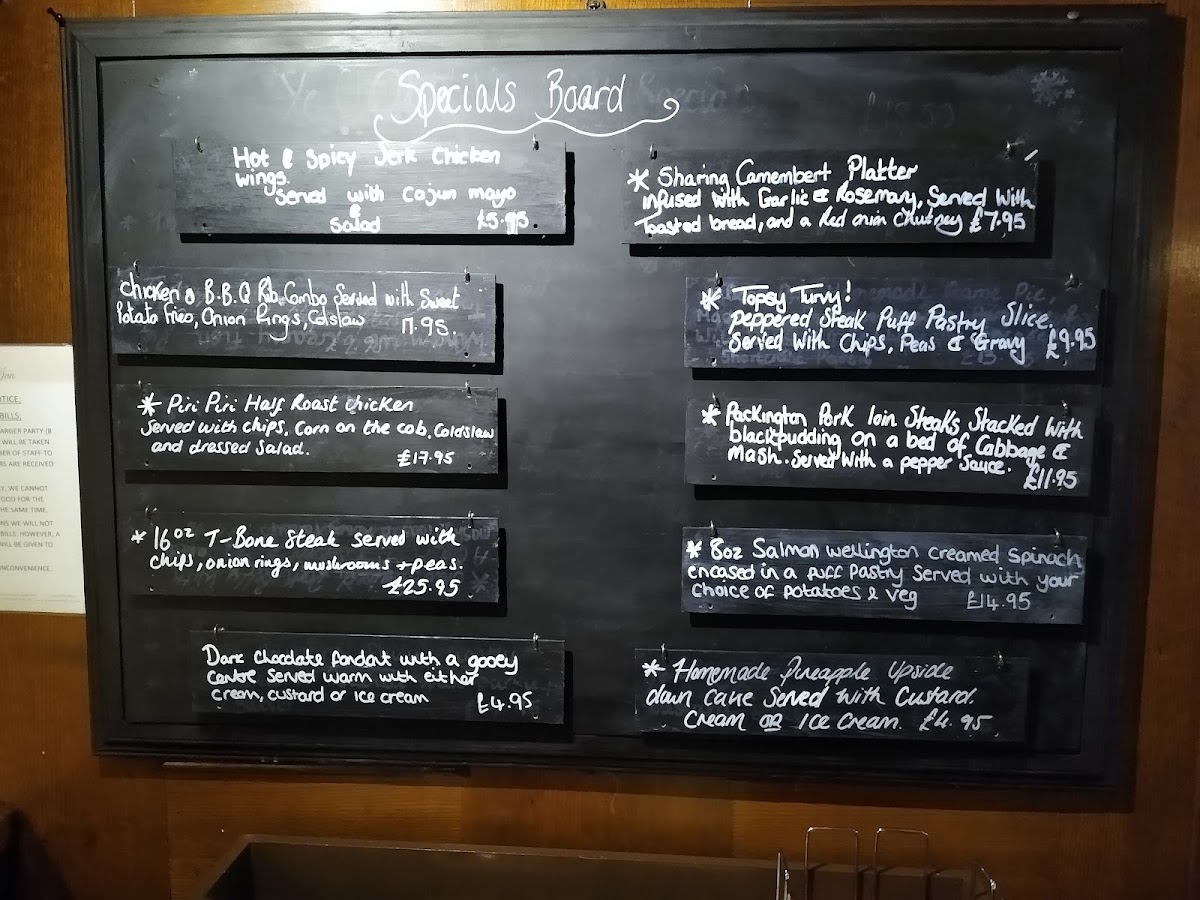 Specials Board
Hot & Spicy Jerk Chicken
wings.
Served with Cajun mayo
&
Salad £5.95
Chicken & B.B.Q Rib Combo Served with Sweet
Potato Fries, Onion Rings, Colslaw 17.95.
* Piri Piri Half Roast Chicken
Served with chips, Corn on the cob, Coldslaw
and dressed salad.
£17.95
* 16oz T-Bone Steak served with
chips, onion rings, mushrooms + peas.
£25.95
Dark chocolate fondant with a gooey
centre served warm with either
cream, custard or ice cream £4.95
* Sharing Camembert Platter
infused with Garlic & Rosemary, Served With
Toasted bread, and a Red onion Chutney £7.95
* Topsy Turvy!
peppered Steak Puff Pastry Slice.
Served with Chips, Peas & Gravy £9.95
* Packington Pork loin Steaks Stacked With
blackpudding on a bed of Cabbage &
Mash. Served With a pepper sauce.
£11.95
* 8oz Salmon wellington creamed spinach
encased in a puff pastry served with your
choice of potatoes & veg £14.95
* Homemade Pineapple Upside
down cake Served With Custard.
Cream OR Ice Cream. £4.95
Inn
BILLS;
ARGER PARTY (8
WILL BE TAKEN
BER OF STAFF TO
RS ARE RECEIVED
Y. WE CANNOT
OOD FOR THE
HE SAME TIME.
ONS WE WILL NOT
BILLS. HOWEVER, A
WILL BE GIVEN TO
NCONVENIENCE.